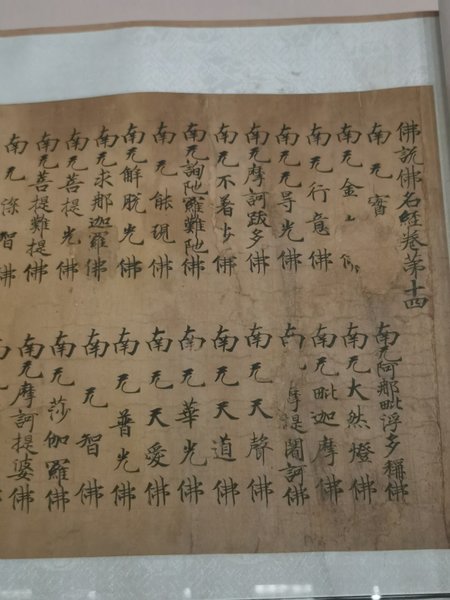 佛說佛名經卷第十四
南无
南无阿那毗浮多稱佛
南无金山
南无大然燈佛
南无行意佛
南无毗迦摩佛
南无光佛
南提闍訶佛
南无摩訶跋多佛
南无天聲佛
南无不着步佛
南无天道佛
南无詢陁羅難陁佛
南无華光佛
南无能現佛
南无天愛佛
南无解脫光佛
南无普光佛
南无求那迦羅佛
南无智佛
南无菩提光佛
南无莎伽羅佛
南无菩提難提佛
南无摩訶提婆佛
南无滌智佛